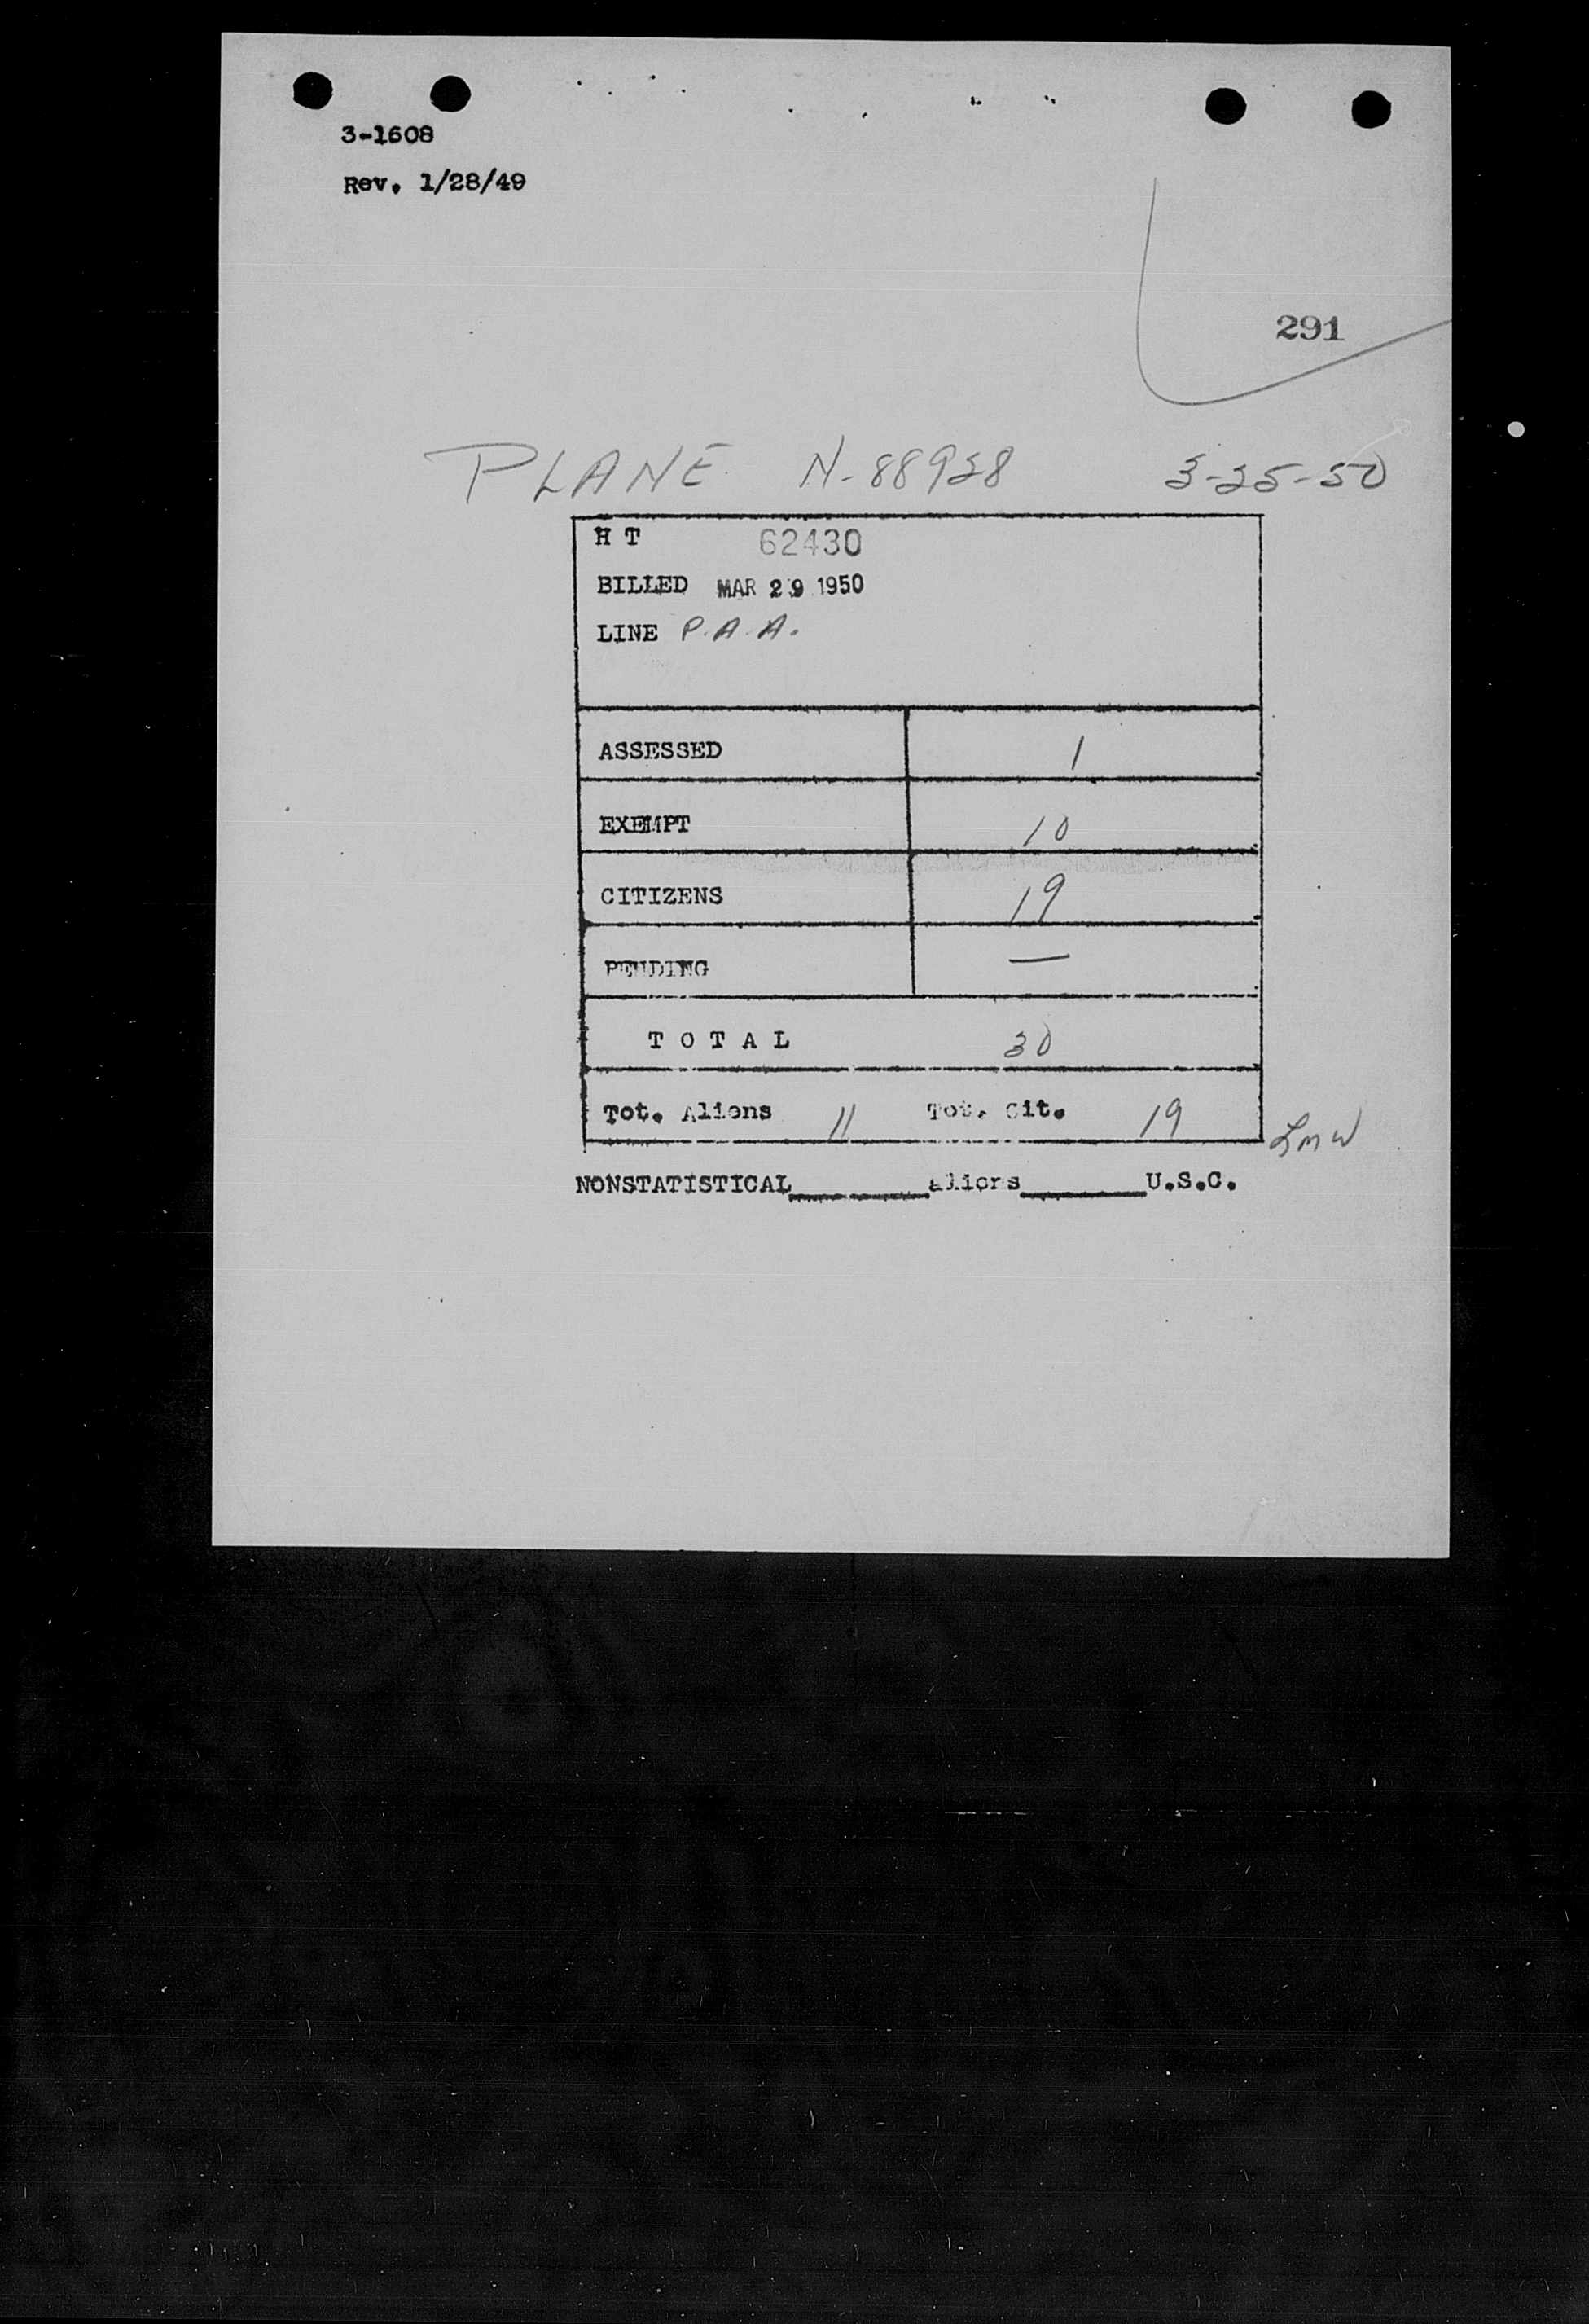 3-1608
Rev. 1/28/49
291
PLANE N-88928 3-25-50
H T 62430
BILLED MAR 29 1950
LINE P.A.A.
ASSESSED 1
EXEMPT 10
CITIZENS 19
PENDING —
T O T A L 30
Tot. Aliens 11 Tot. Cit. 19
LMW
NONSTATISTICAL________aliens________U.S.C.